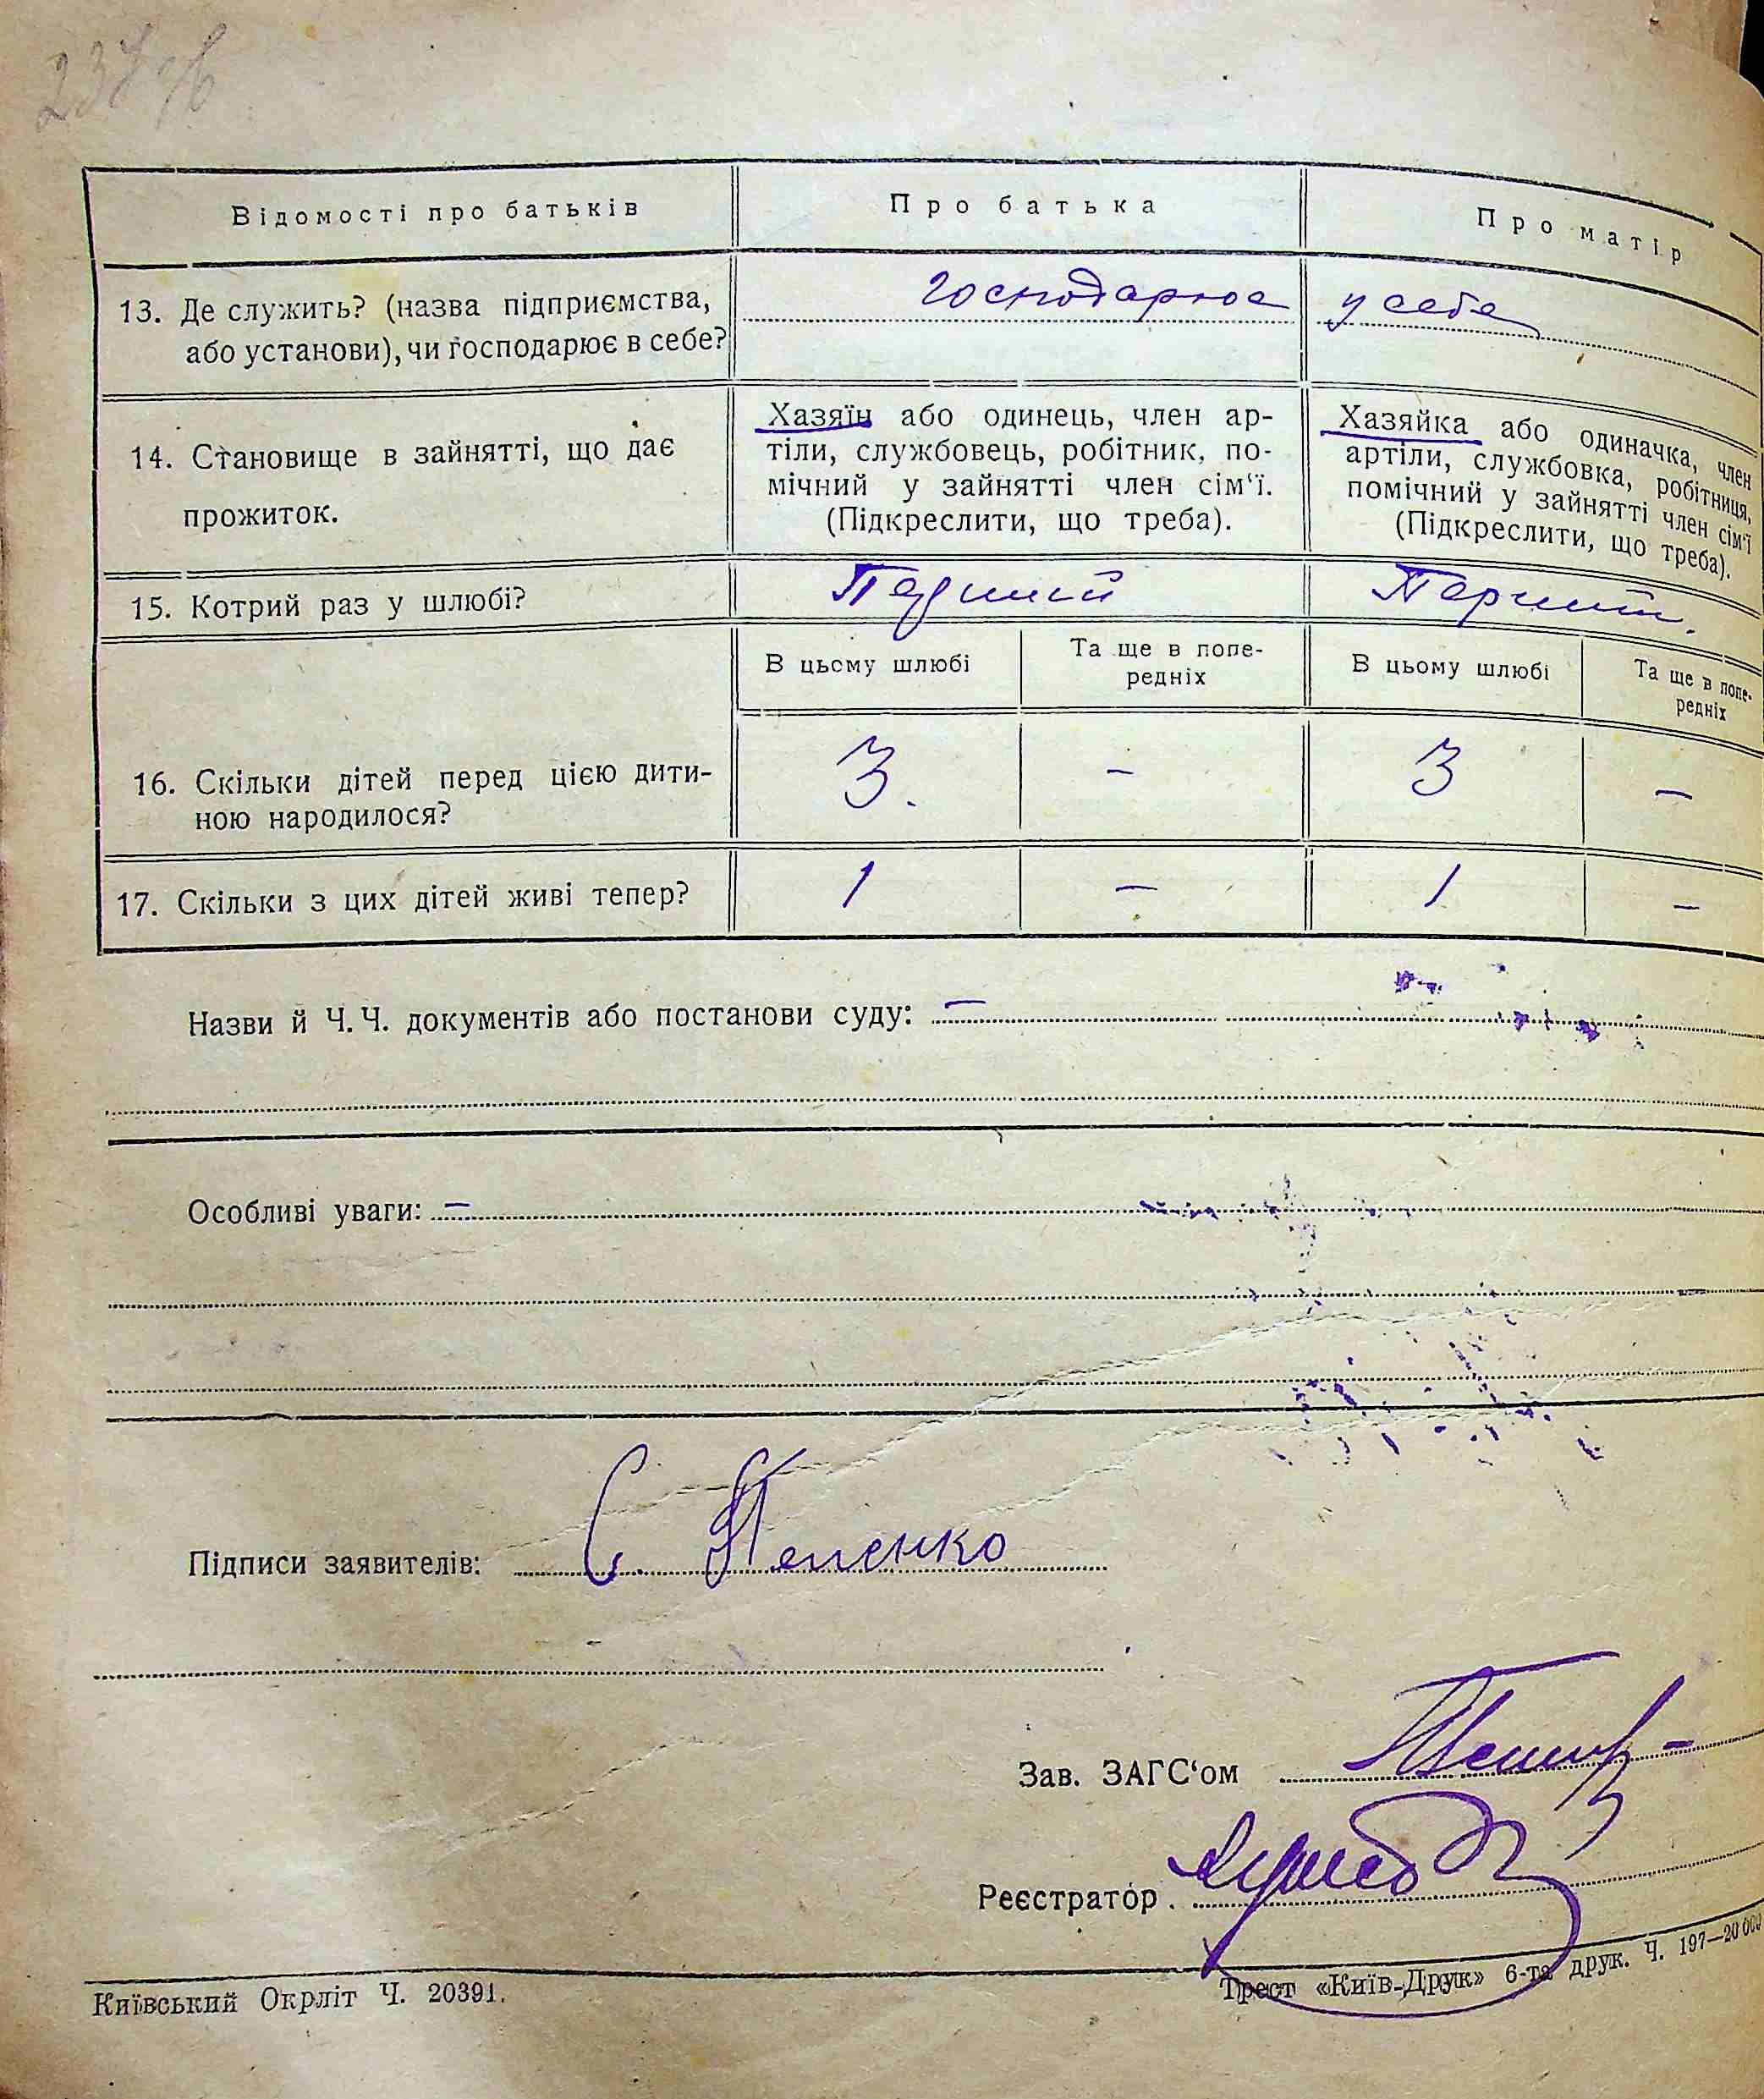 Відомості про батьків
Про батька
Про матір
13. Де служить? (назва підприємства,
або установи), чи господарює в себе?
господарює у себе
14. Становище в зайнятті, що дає
прожиток.
Хазяїн або одинець, член ар-
тіли, службовець, робітник, по-
мічний у зайнятті член сім‘ї.
(Підкреслити, що треба).
Хазяйка або одиначка, член
артіли, службовка, робітниця,
помічний у зайнятті член сім‘ї
(Підкреслити, що треба).
15. Котрий раз у шлюбі?
Перший
Перший.
В цьому шлюбі
Та ще в попе-
редніх
В цьому шлюбі
Та ще в попе-
редніх
16. Скільки дітей перед цією дити-
ною народилося?
3. – 3 –
17. Скільки з цих дітей живі тепер?
1 – 1 –
Назви й Ч. Ч. документів або постанови суду: –
Особливі уваги: –
Підписи заявителів: С.
Зав. ЗАГС‘ом
Реєстратор
Київський Окрліт Ч. 20391.
Трест «Київ-Друк» 6-та друк. Ч. 197—20 000